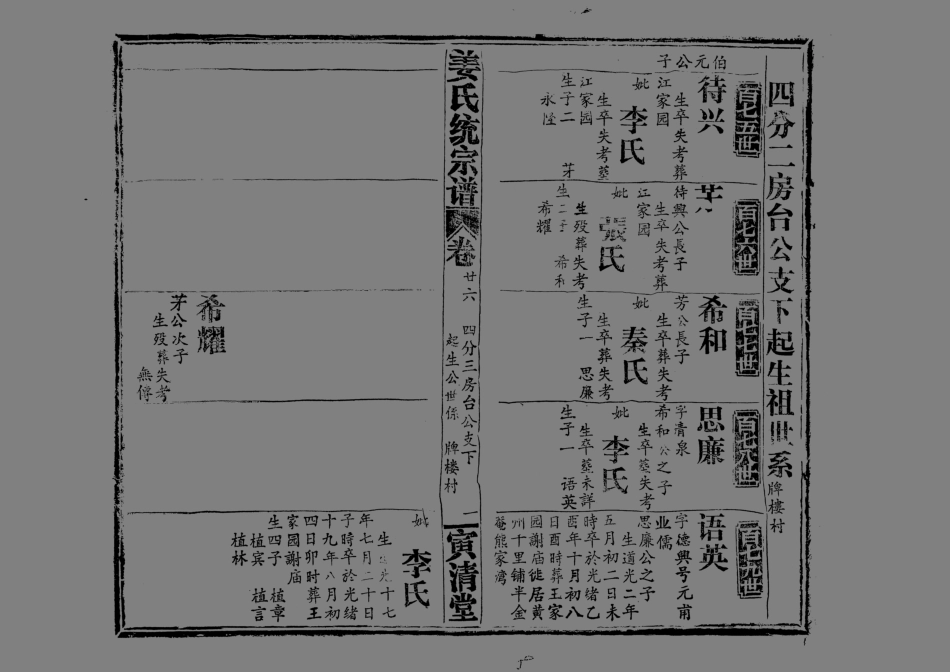 四分二房台公支下起生祖世系 牌樓村
百七五世
伯元公子
待兴
生卒失考葬
江家园
妣 李氏
生卒失考葬
江家园
生子二 芽
永陞
百七六世
待興公長子
生卒失考葬
江家園
妣 張氏
生殁葬失考
生二子 希和
希耀
百七七世
希和
芳公長子
生卒葬失考
妣 秦氏
生卒葬失考
生子一 思廉
百七八世
思廉
字青泉
希和公之子
生卒葬失考
妣 李氏
生卒葬未詳
生子一 语英
百七九世
语英
字德興号元甫
业儒
思廉公之子
生道光二年
五月初二日未
時卒於光緒乙
酉年十月初八
日酉時葬王家
园謝庙徙居黄
州十里铺半金
菴熊家湾
姜氏统宗谱 卷
廿六 四分三房台公支下
起生公世係 牌楼村
一
寅清堂
希耀
茅公次子
生殁葬失考
無傳
妣 李氏
生 光十七
年七月二十日
子時卒於光绪
十九年八月初
四日卯时葬王
家园謝庙
生四子 植章
植宾 植言
植林